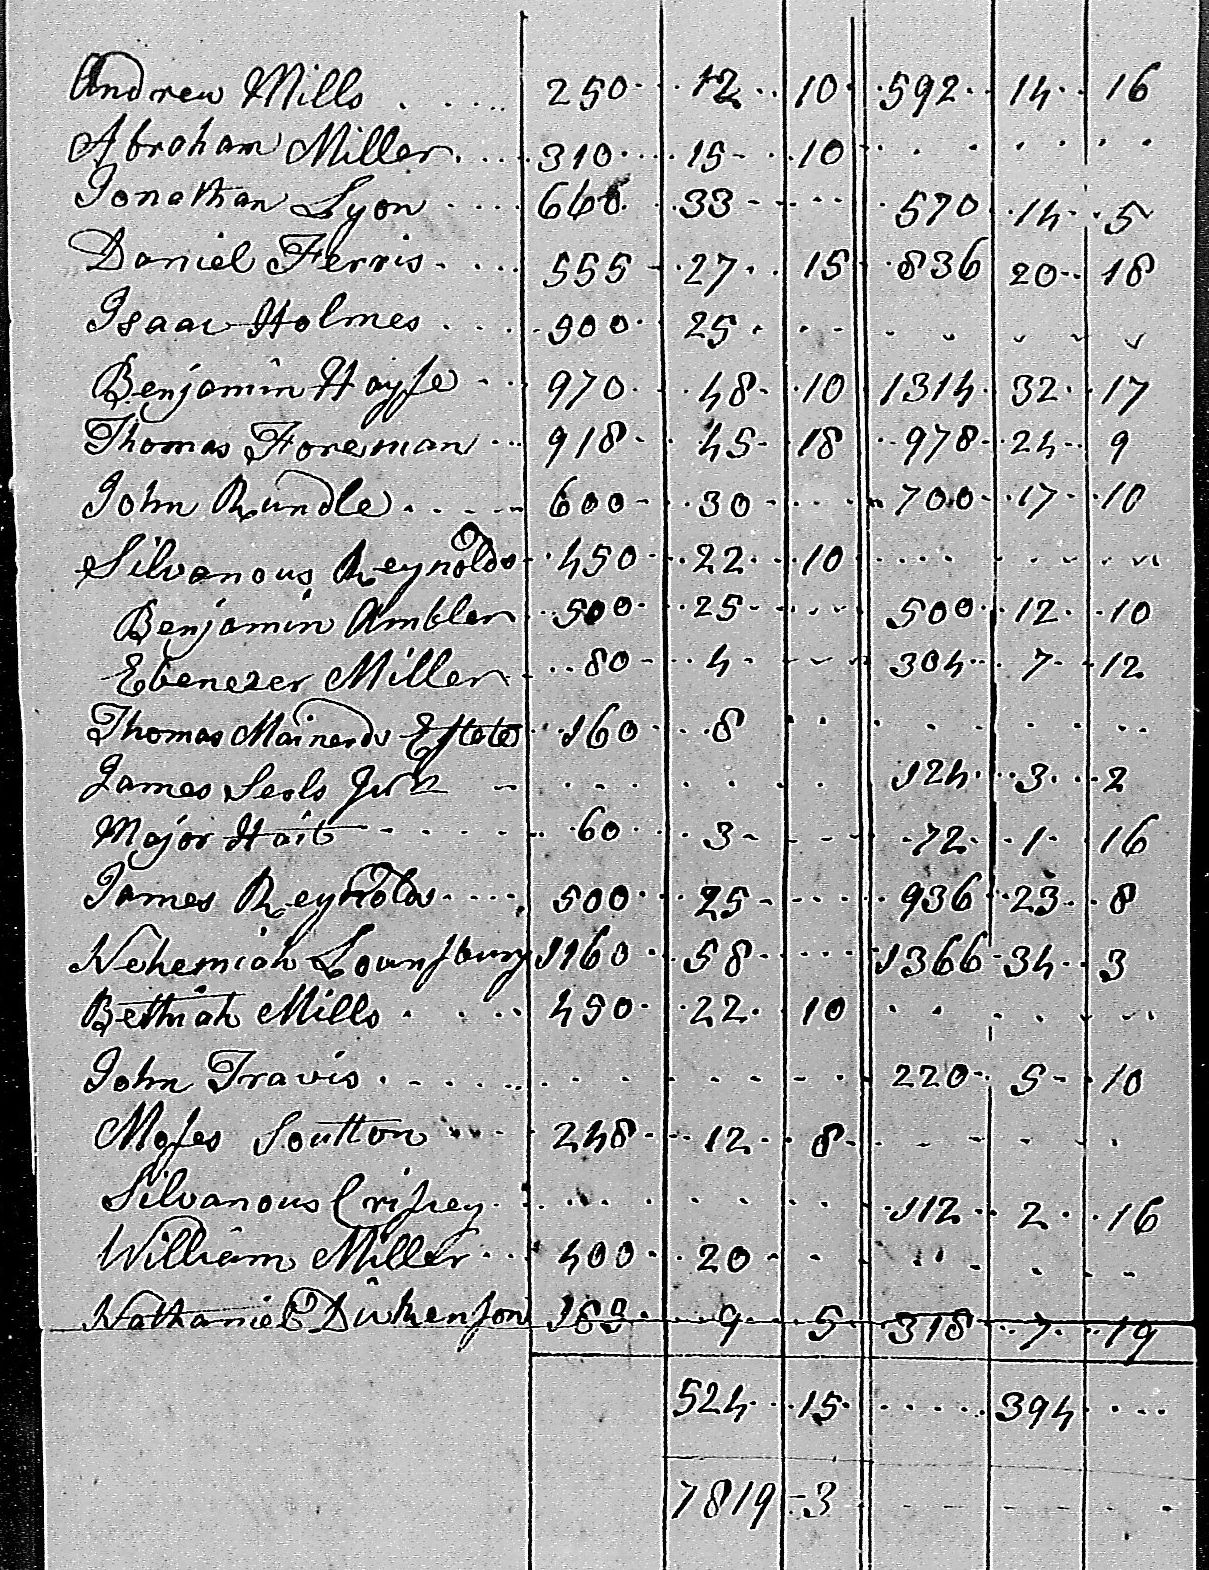 Andrew Mills 250 12 10 592 14 16
Abraham Miller 310 15 10
Jonathan Lyon 660 33 570 14 5
Daniel Ferris 555 27 15 836 20 18
Isaac Holmes 500 25
Benjamin Hayse 970 48 10 1314 32 17
Thomas Foreman 918 45 18 978 24 9
John Rundle 600 30 700 17 10
Silvanous Reynolds 450 22 10
Benjamin Ambler 500 25 500 12 10
Ebenezer Miller 80 4 304 7 12
Thomas Mainards Estate 160 8
James Seals Junr 124 3 2
Major Hait 60 3 72 1 16
James Reynolds 500 25 936 23 8
Nehemiah Lounsbury 1160 58 1366 34 3
Bethiah Mills 450 22 10
John Travis 220 5 10
Moses Soutton 248 12 8
Silvanous Crissey 112 2 16
William Miller 400 20
Nathaniel Dickenson 185 9 5 318 7 19
524 15 394
7819 3